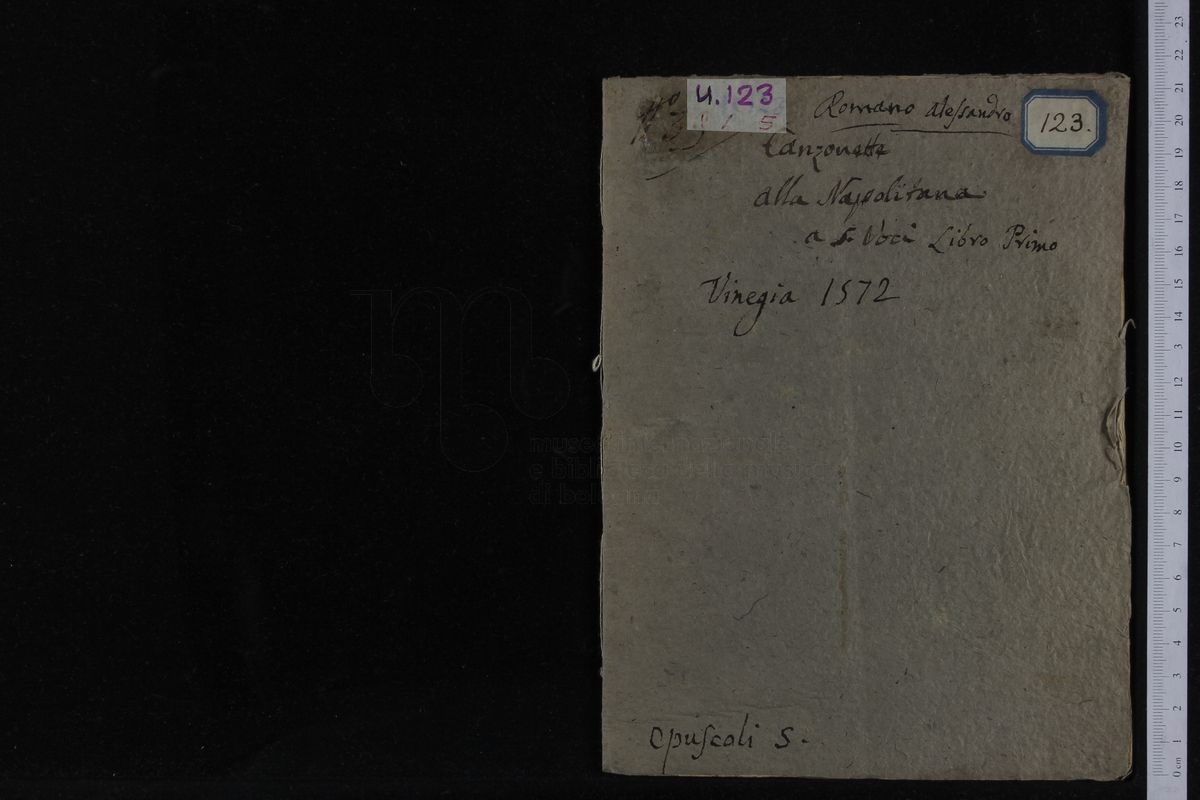 U.123
1 / 5
Romano Alessandro
123.
Canzonette
alla Napolitana
a 5. Voci Libro Primo
Vinegia 1572
museo internazionale
e biblioteca della musica
di bologna
Opuscoli 5.
23
22
21
20
19
18
17
16
15
14
3
12
11
10
9
8
7
6
5
4
3
2
1
0 cm